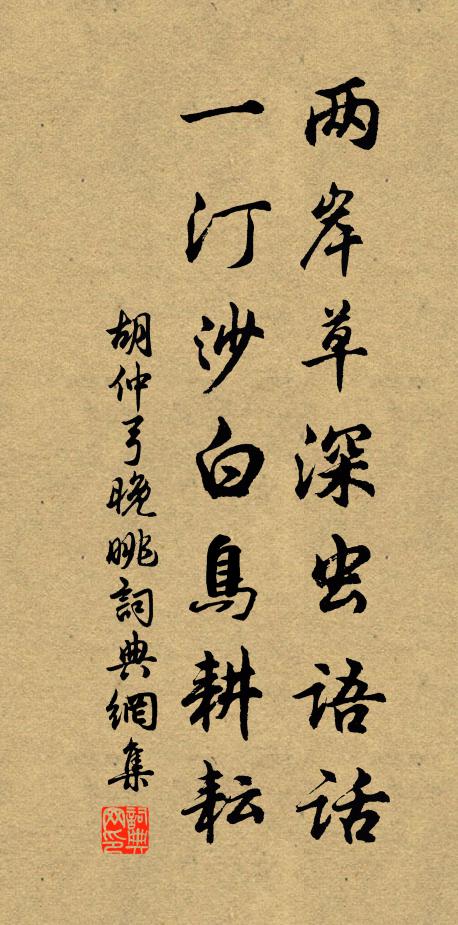 两岸草深虫语话
一汀沙白鳥耕耘
胡仲弓晚眺詞典網集
詞典网印